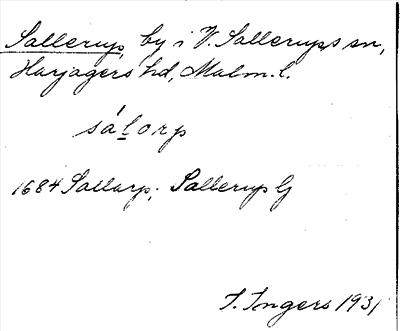 Sallerup, by i V. Sallerups sn,
Harjagers hd, Malm. l.
sálorp
1684 Sallarp; Sallerup G
I. Ingers 1931